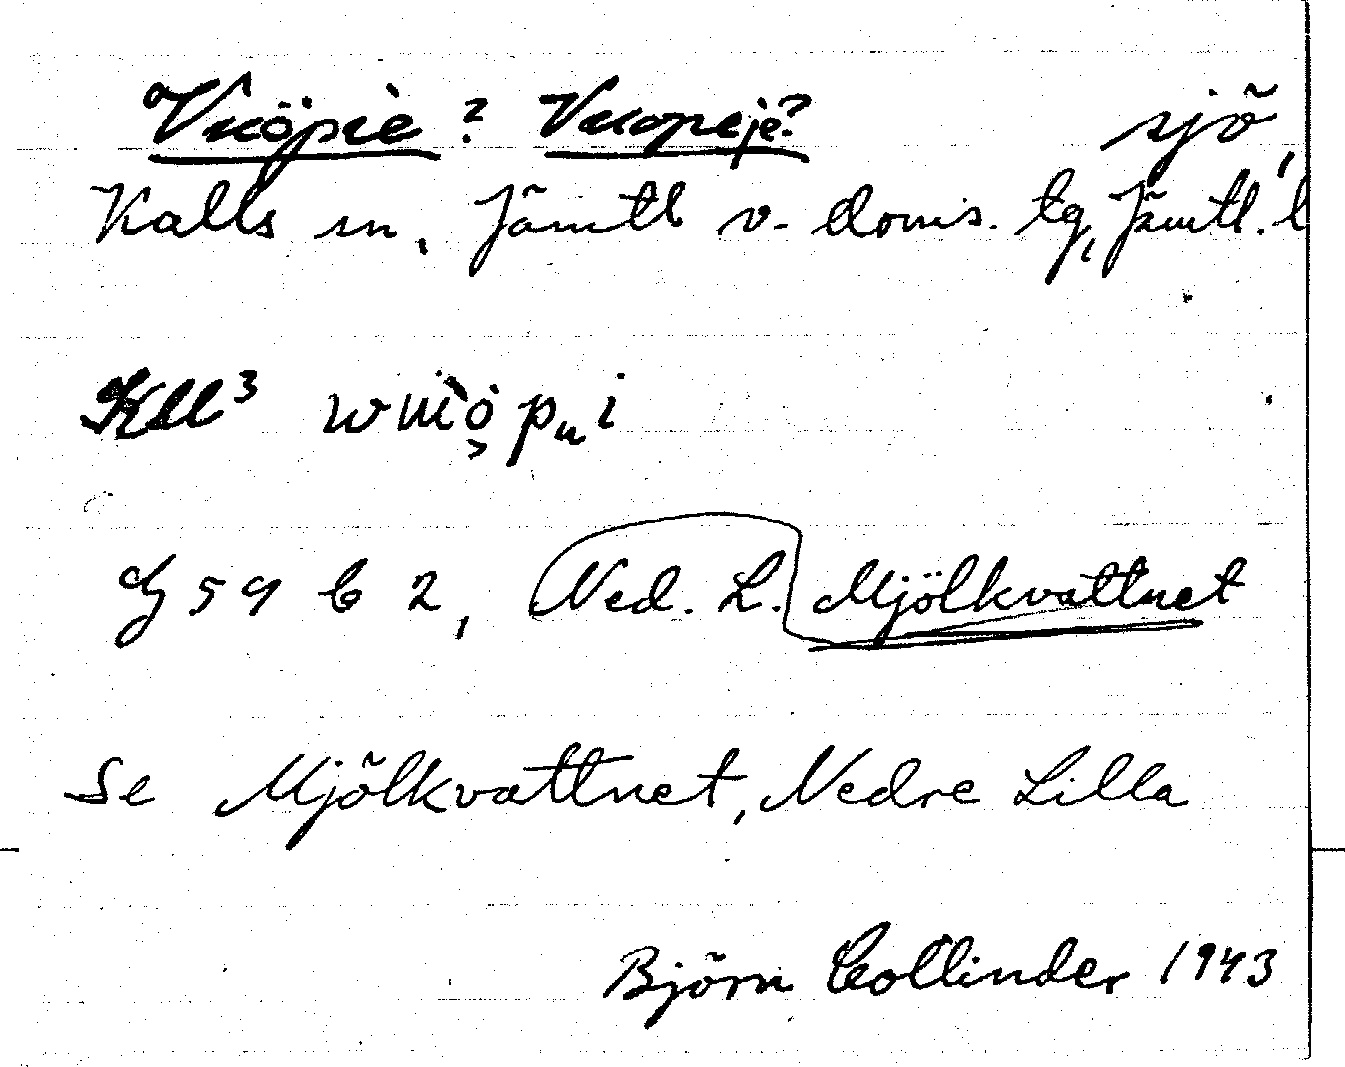 Vuöpie? Vuopeje? sjö,
Kalls sn, Jämtl v. doms. tg, Jämtl. l
Kll³
G 59 b 2, Ned. L. Mjölkvattnet
Se Mjölkvattnet, Nedre Lilla
Björn Collinder 1943